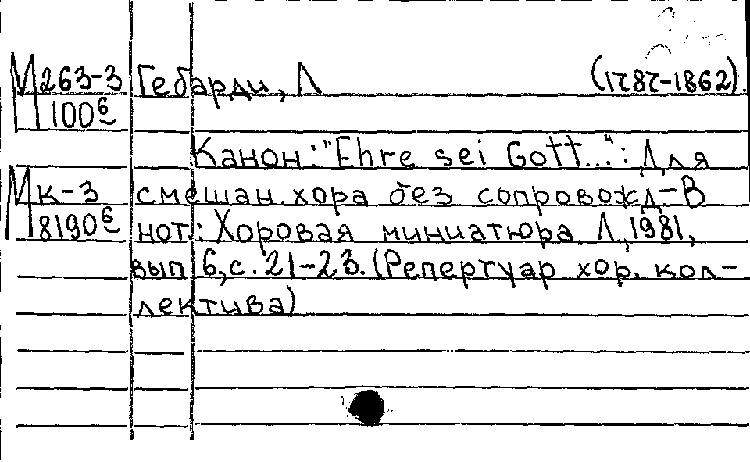 М263-3 Гебарди, Л (1787-1862).
100⁶
Канон: "Ehre sei Gott...": Для
Мк-3 смешан. хора без сопровожд-В
8190⁶ нот.: Хоровая миниатюра Л, 1981,
вып 6, с. 21-23. (Репертуар хор. кол-
лектива)